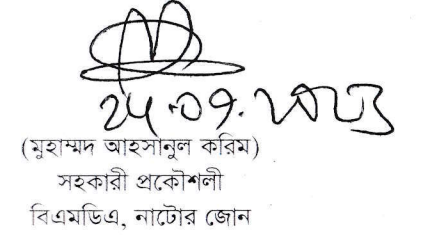 24.09.2023
(মুহাম্মদ আহসানুল করিম)
সহকারী প্রকৌশলী
বিএমডিএ, নাটোর জোন